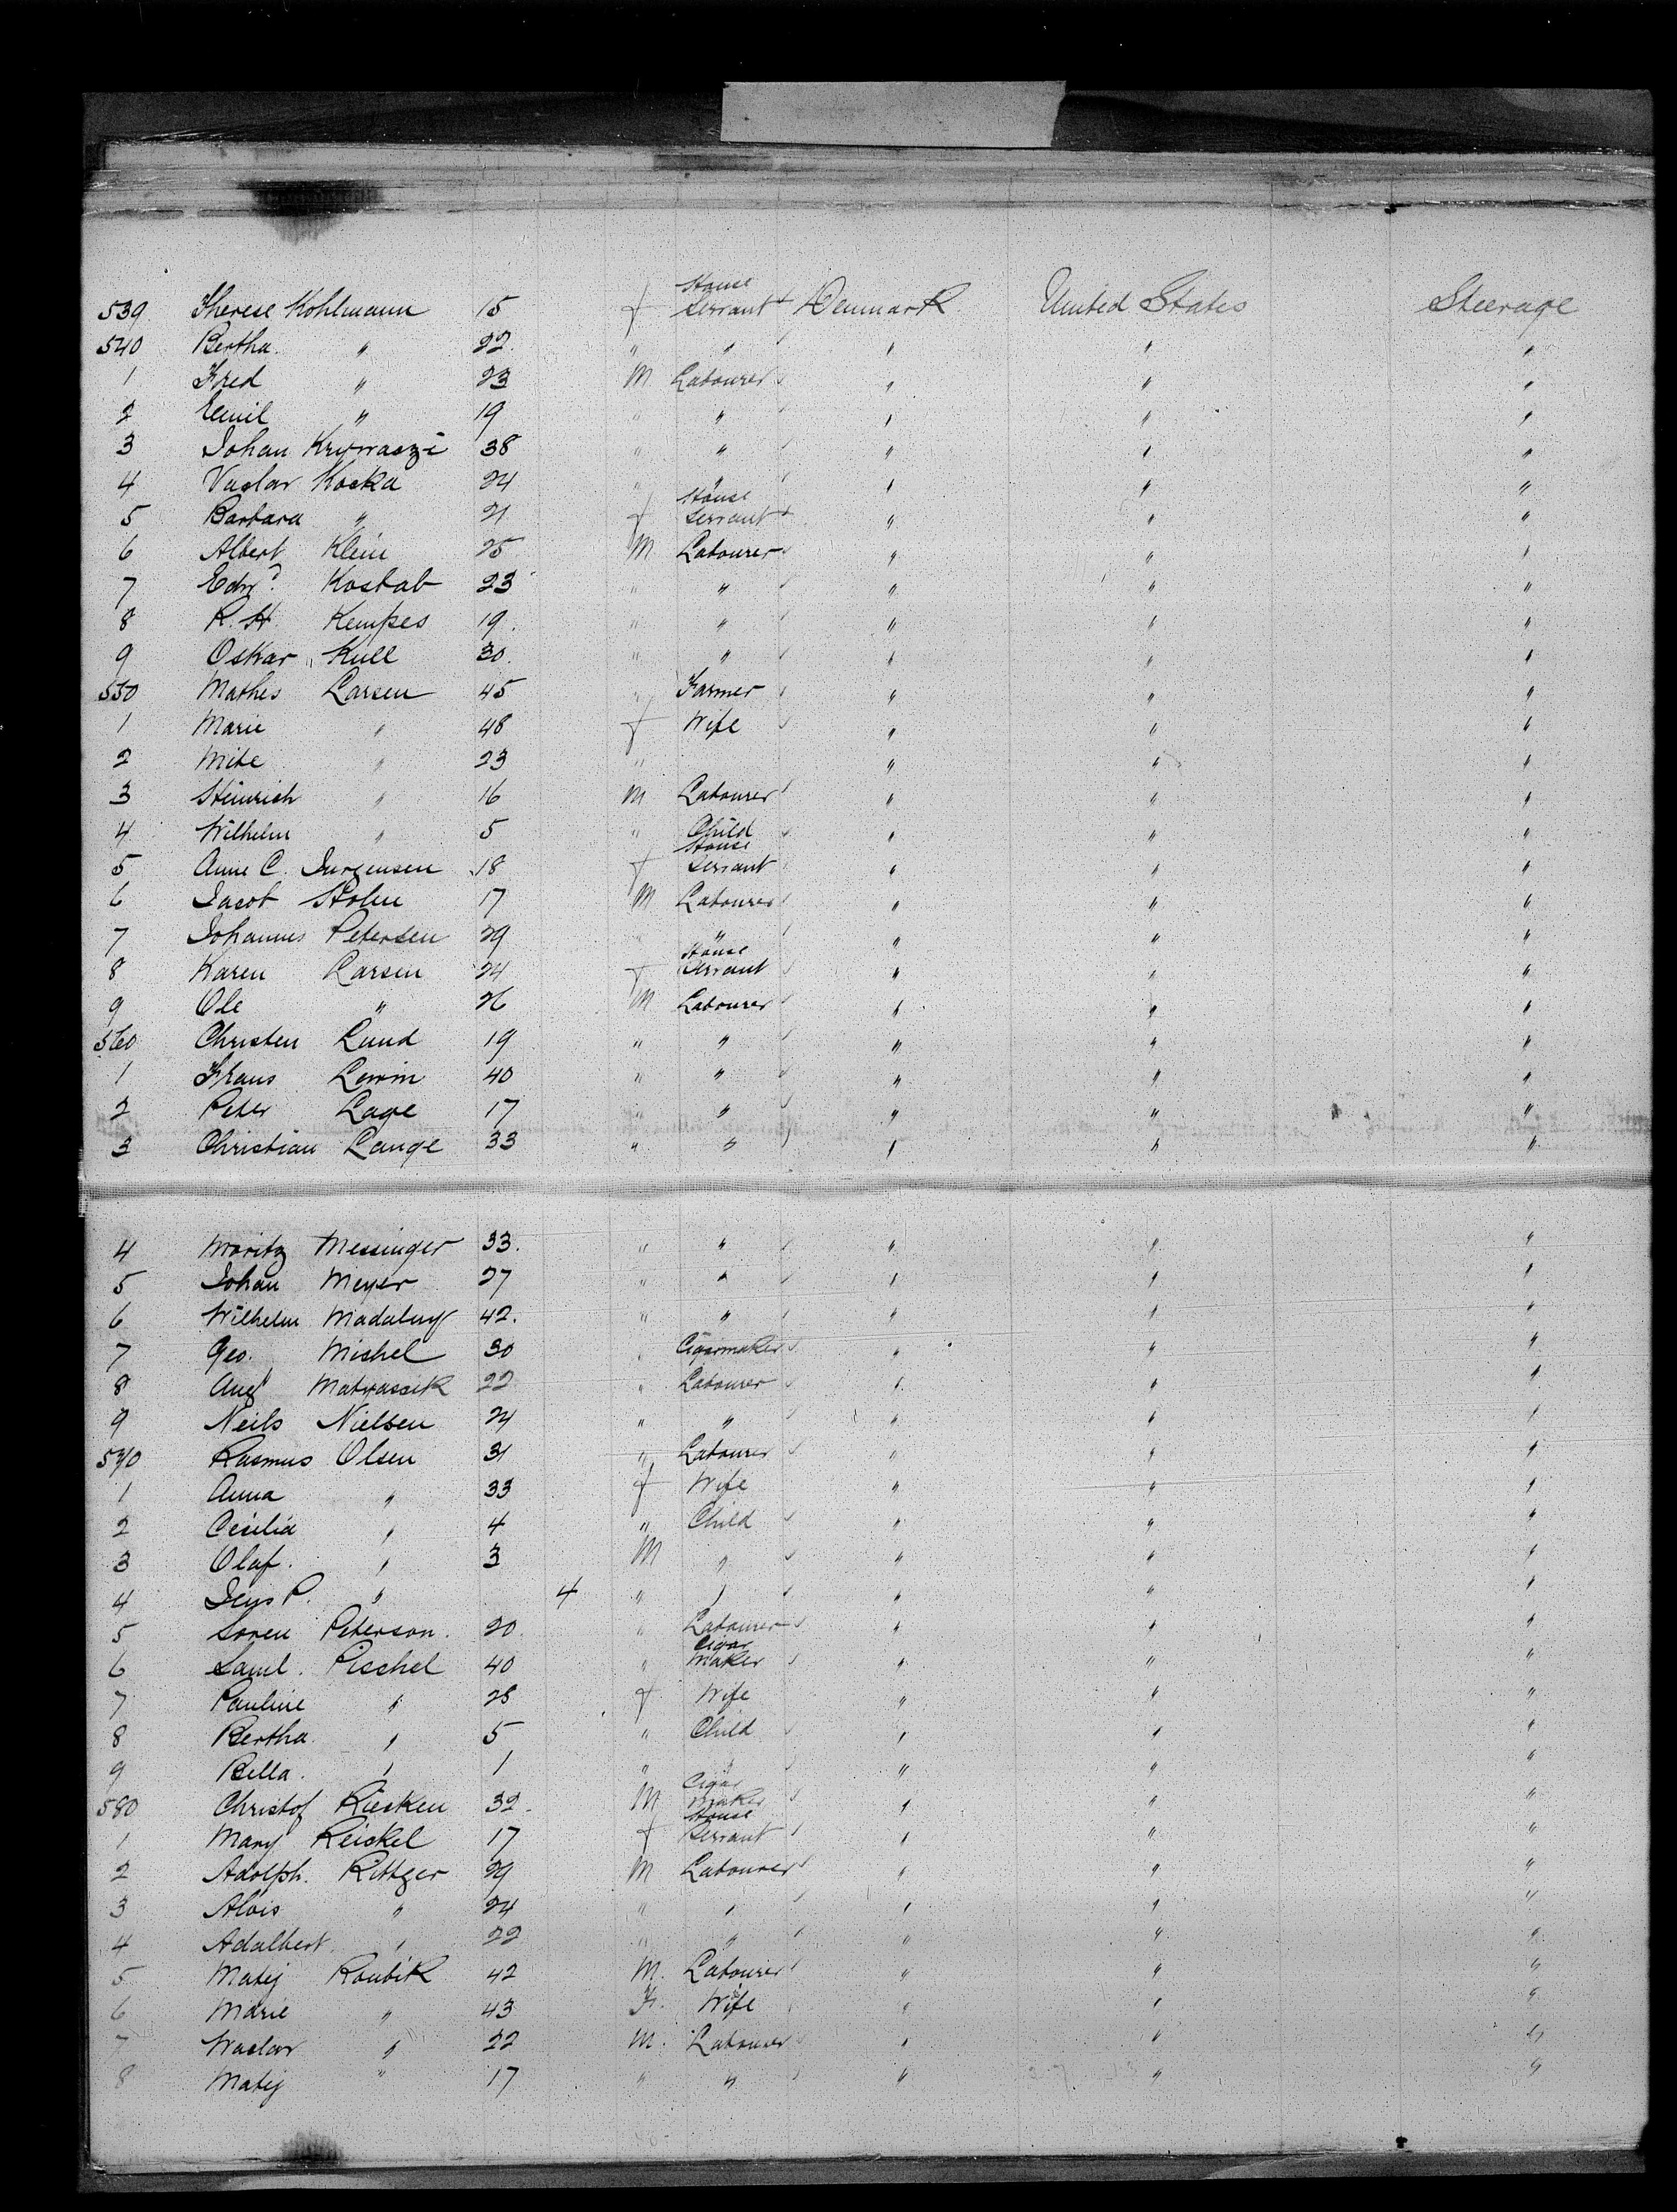 539 Therese Kohlmann 15 f House Servant Denmark United States Steerage
540 Bertha " 22 " " " " "
1 Fred " 23 M Labourer " " "
2 Emil " 19 " " " " "
3 Johan 38 " " " " "
4 Vaslav Koska 24 " " " " "
5 Barbara " 21 f House Servant " " "
6 Albert Klein 25 M Labourer " " "
7 Edwd Kostab 23 " " " " "
8 R. H. Kempes 19 " " " " "
9 Oskar Kull 30 " " " " "
550 Mathes Larsen 45 " Farmer " " "
1 Marie " 48 f Wife " " "
2 Mike " 23 " " " "
3 Heinrich " 16 M Labourer " " "
4 Wilhelm " 5 " Child " " "
5 Anne C. Jurgensen 18 f House Servant " " "
6 Jacob Holm 17 M Labourer " " "
7 Johannes Petersen 29 " " " " "
8 Karen Larsen 24 f House Servant " " "
9 Ole " 26 M Labourer " " "
560 Christen Lund 19 " " " " "
1 Lewin 40 " " " " "
2 Peter Lage 17 " " " " "
3 Christian Lange 33 " " " " "
4 Moritz Messinger 33. " " " " "
5 Johan Meyer 27 " " " " "
6 Wilhelm 42. " " " " "
7 Geo. Mishel 30 " Cigarmaker " " "
8 Augt Matyassik 22 " Labourer " " "
9 Neils Nielsen 24 " " " " "
570 Rasmus Olsen 31 " Labourer " " "
1 Anna " 33 f Wife " " "
2 Cecilia " 4 " Child " " "
3 Olaf. " 3 M " " " "
4 Jens P. " 4 " " " " "
5 Soren Peterson. 20 " Labourer " " "
6 Saml. Pischel 40 " Cigar Maker " " "
7 Pauline " 28 f Wife " " "
8 Bertha " 5 " Child " " "
9 Bella. " 1 " " " " "
580 Christof Riecken 32 M Cigar Maker " " "
1 Mary Reickel 17 f House Servant " " "
2 Adolph. Rittger 29 M Labourer " " "
3 Alois " 24 " " " " "
4 Adalbert " 22 " " " " "
5 Matij Roubik 42 M. Labourer " " "
6 Marie " 43 F. Wife " " "
7 Waslav " 22 M. Labourer " " "
8 Matij " 17 " " " " "